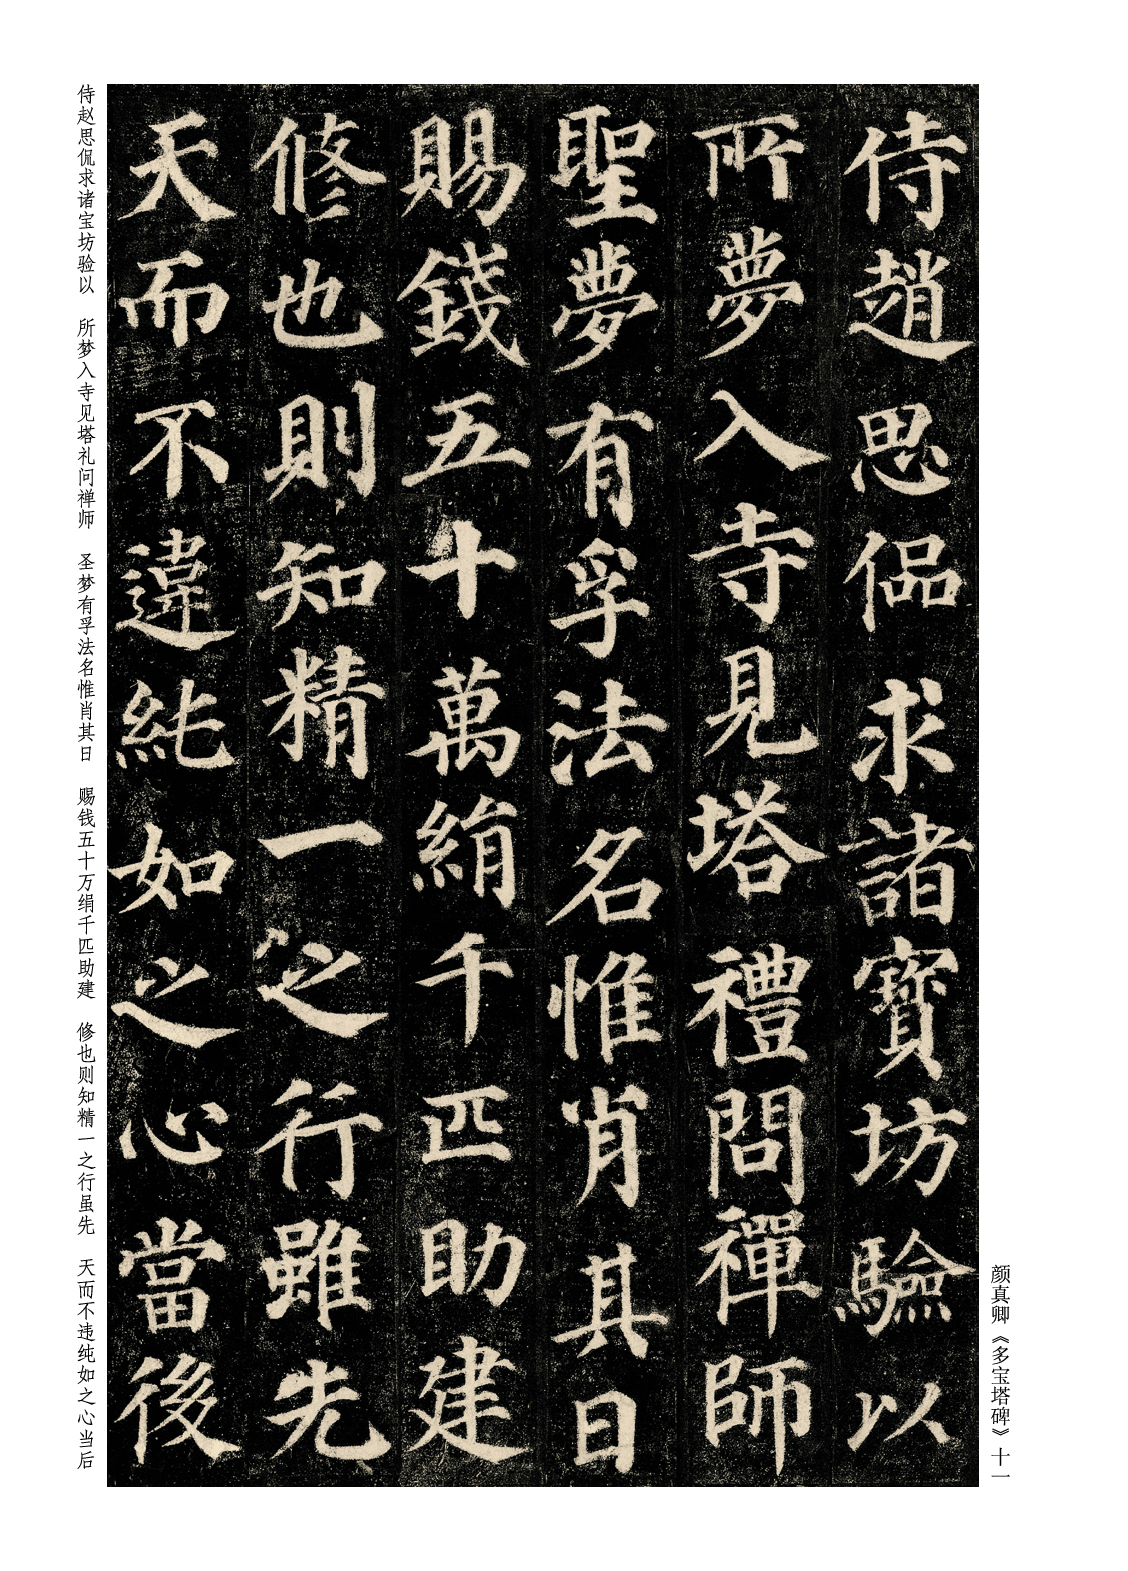 侍趙思偘求諸寶坊驗以
所夢入寺見塔禮問禪師
聖夢有孚法名惟肖其日
賜錢五十萬絹千匹助建
修也則知精一之行雖先
天而不違純如之心當後
颜真卿《多宝塔碑》十一
侍赵思侃求诸宝坊验以 所梦入寺见塔礼问禅师 圣梦有孚法名惟肖其日 赐钱五十万绢千匹助建 修也则知精一之行虽先 天而不违纯如之心当后